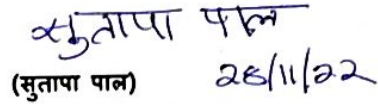 सुतापा पाल
(सुतापा पाल) 28/11/22